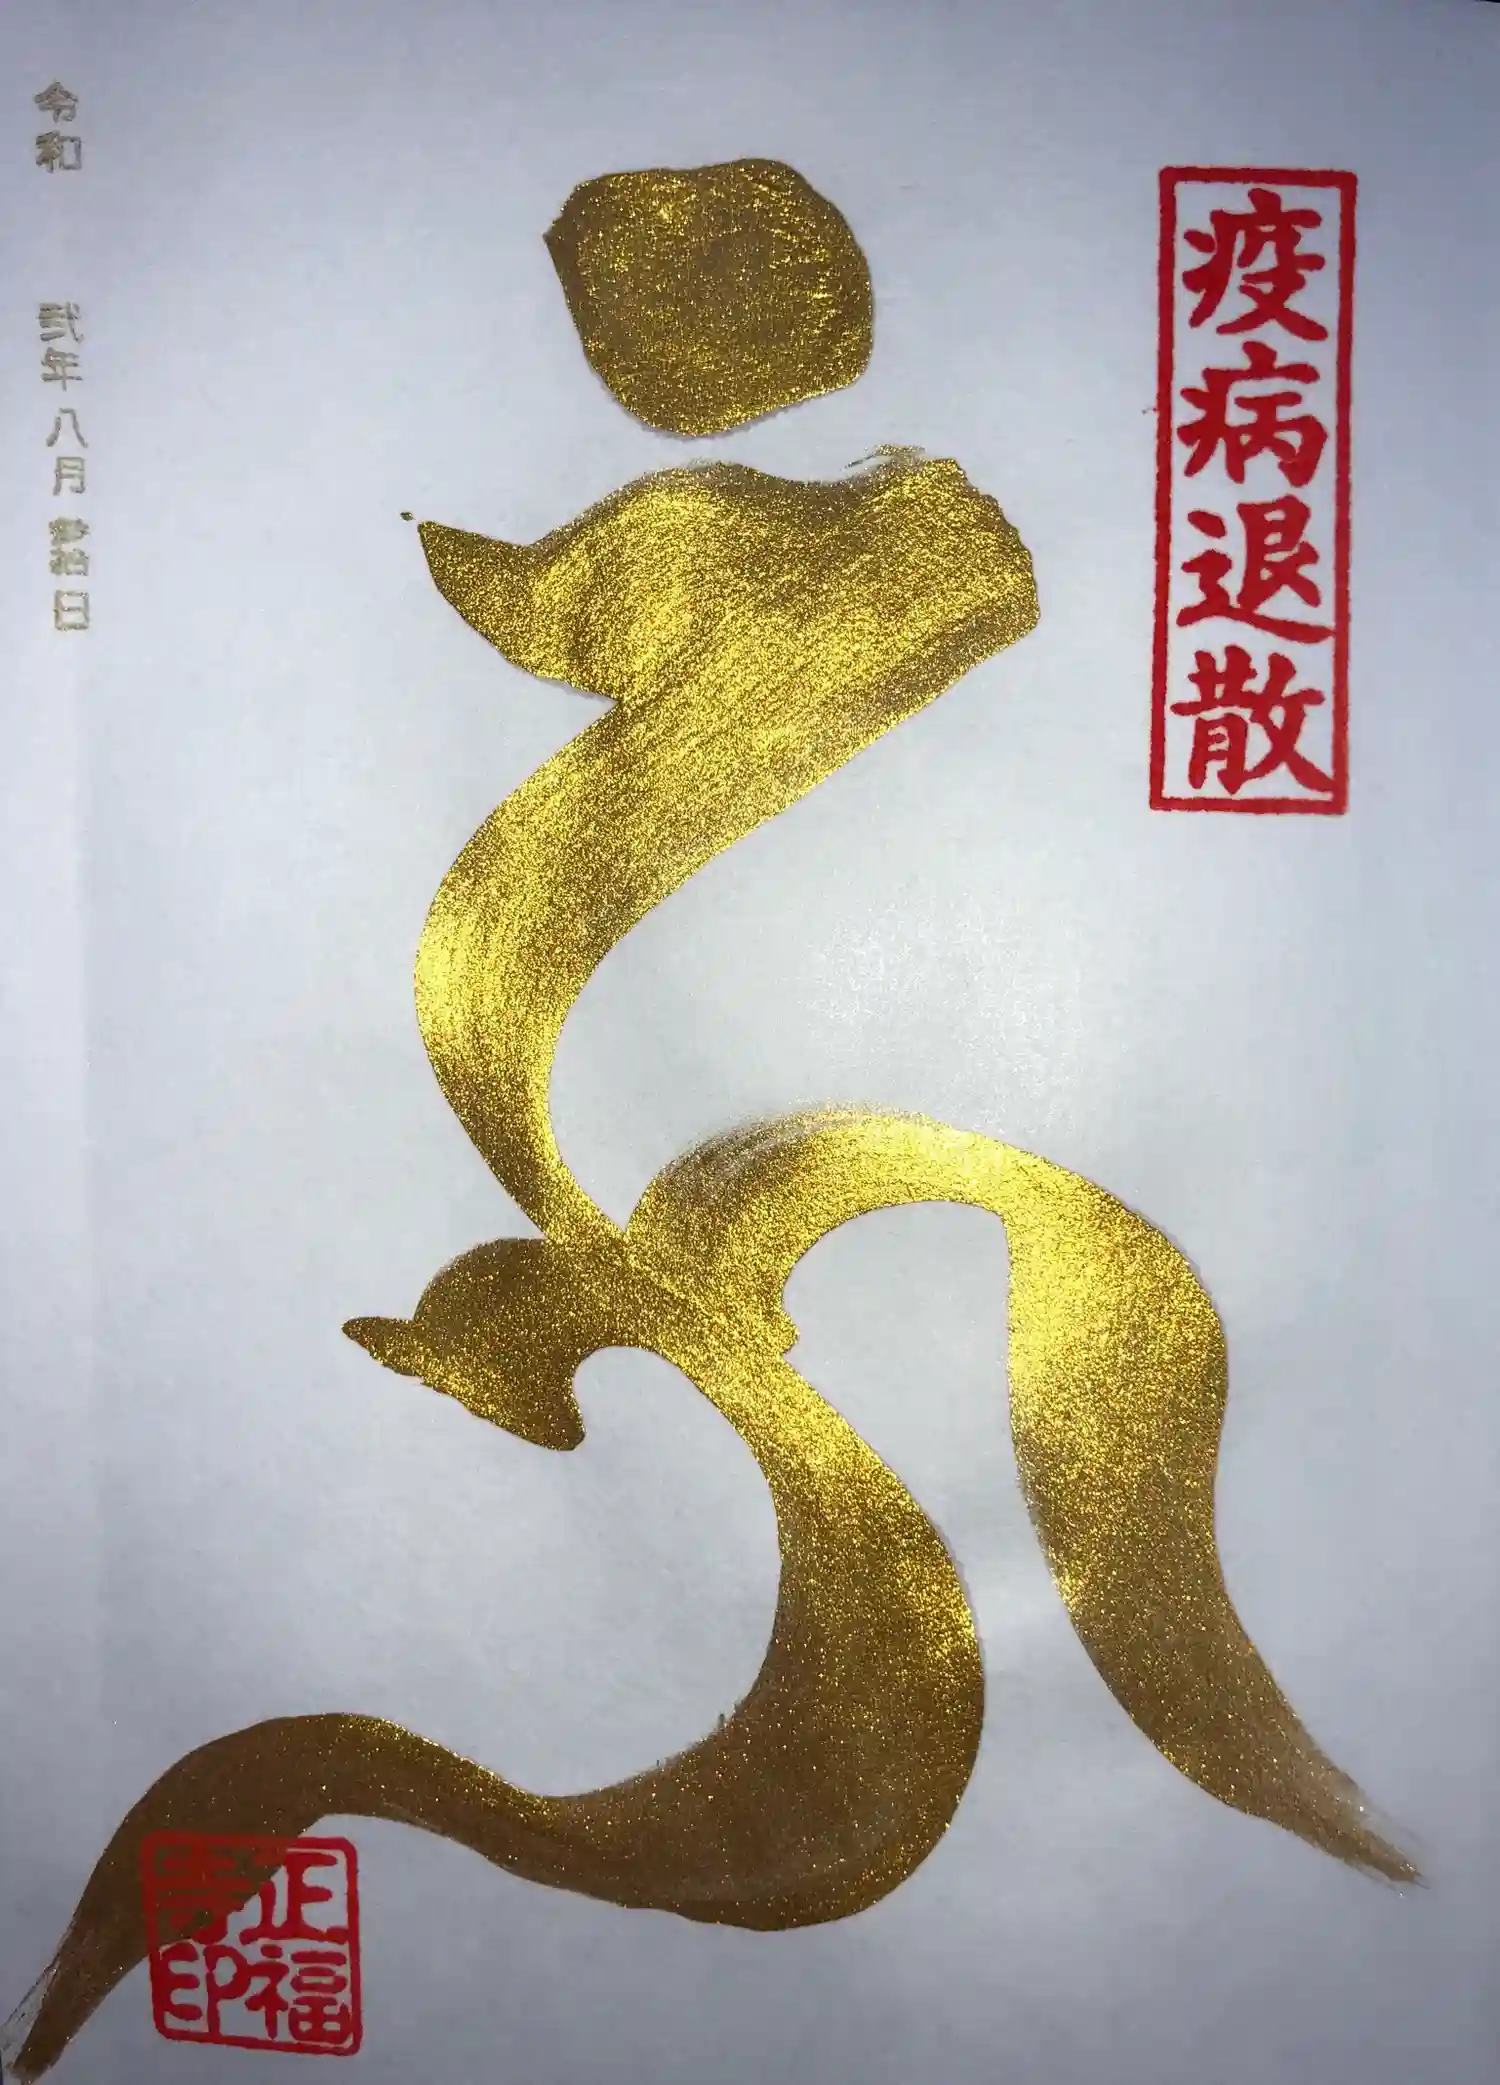 疫病退散
令和 弐年八月参拾日
正福
寺印